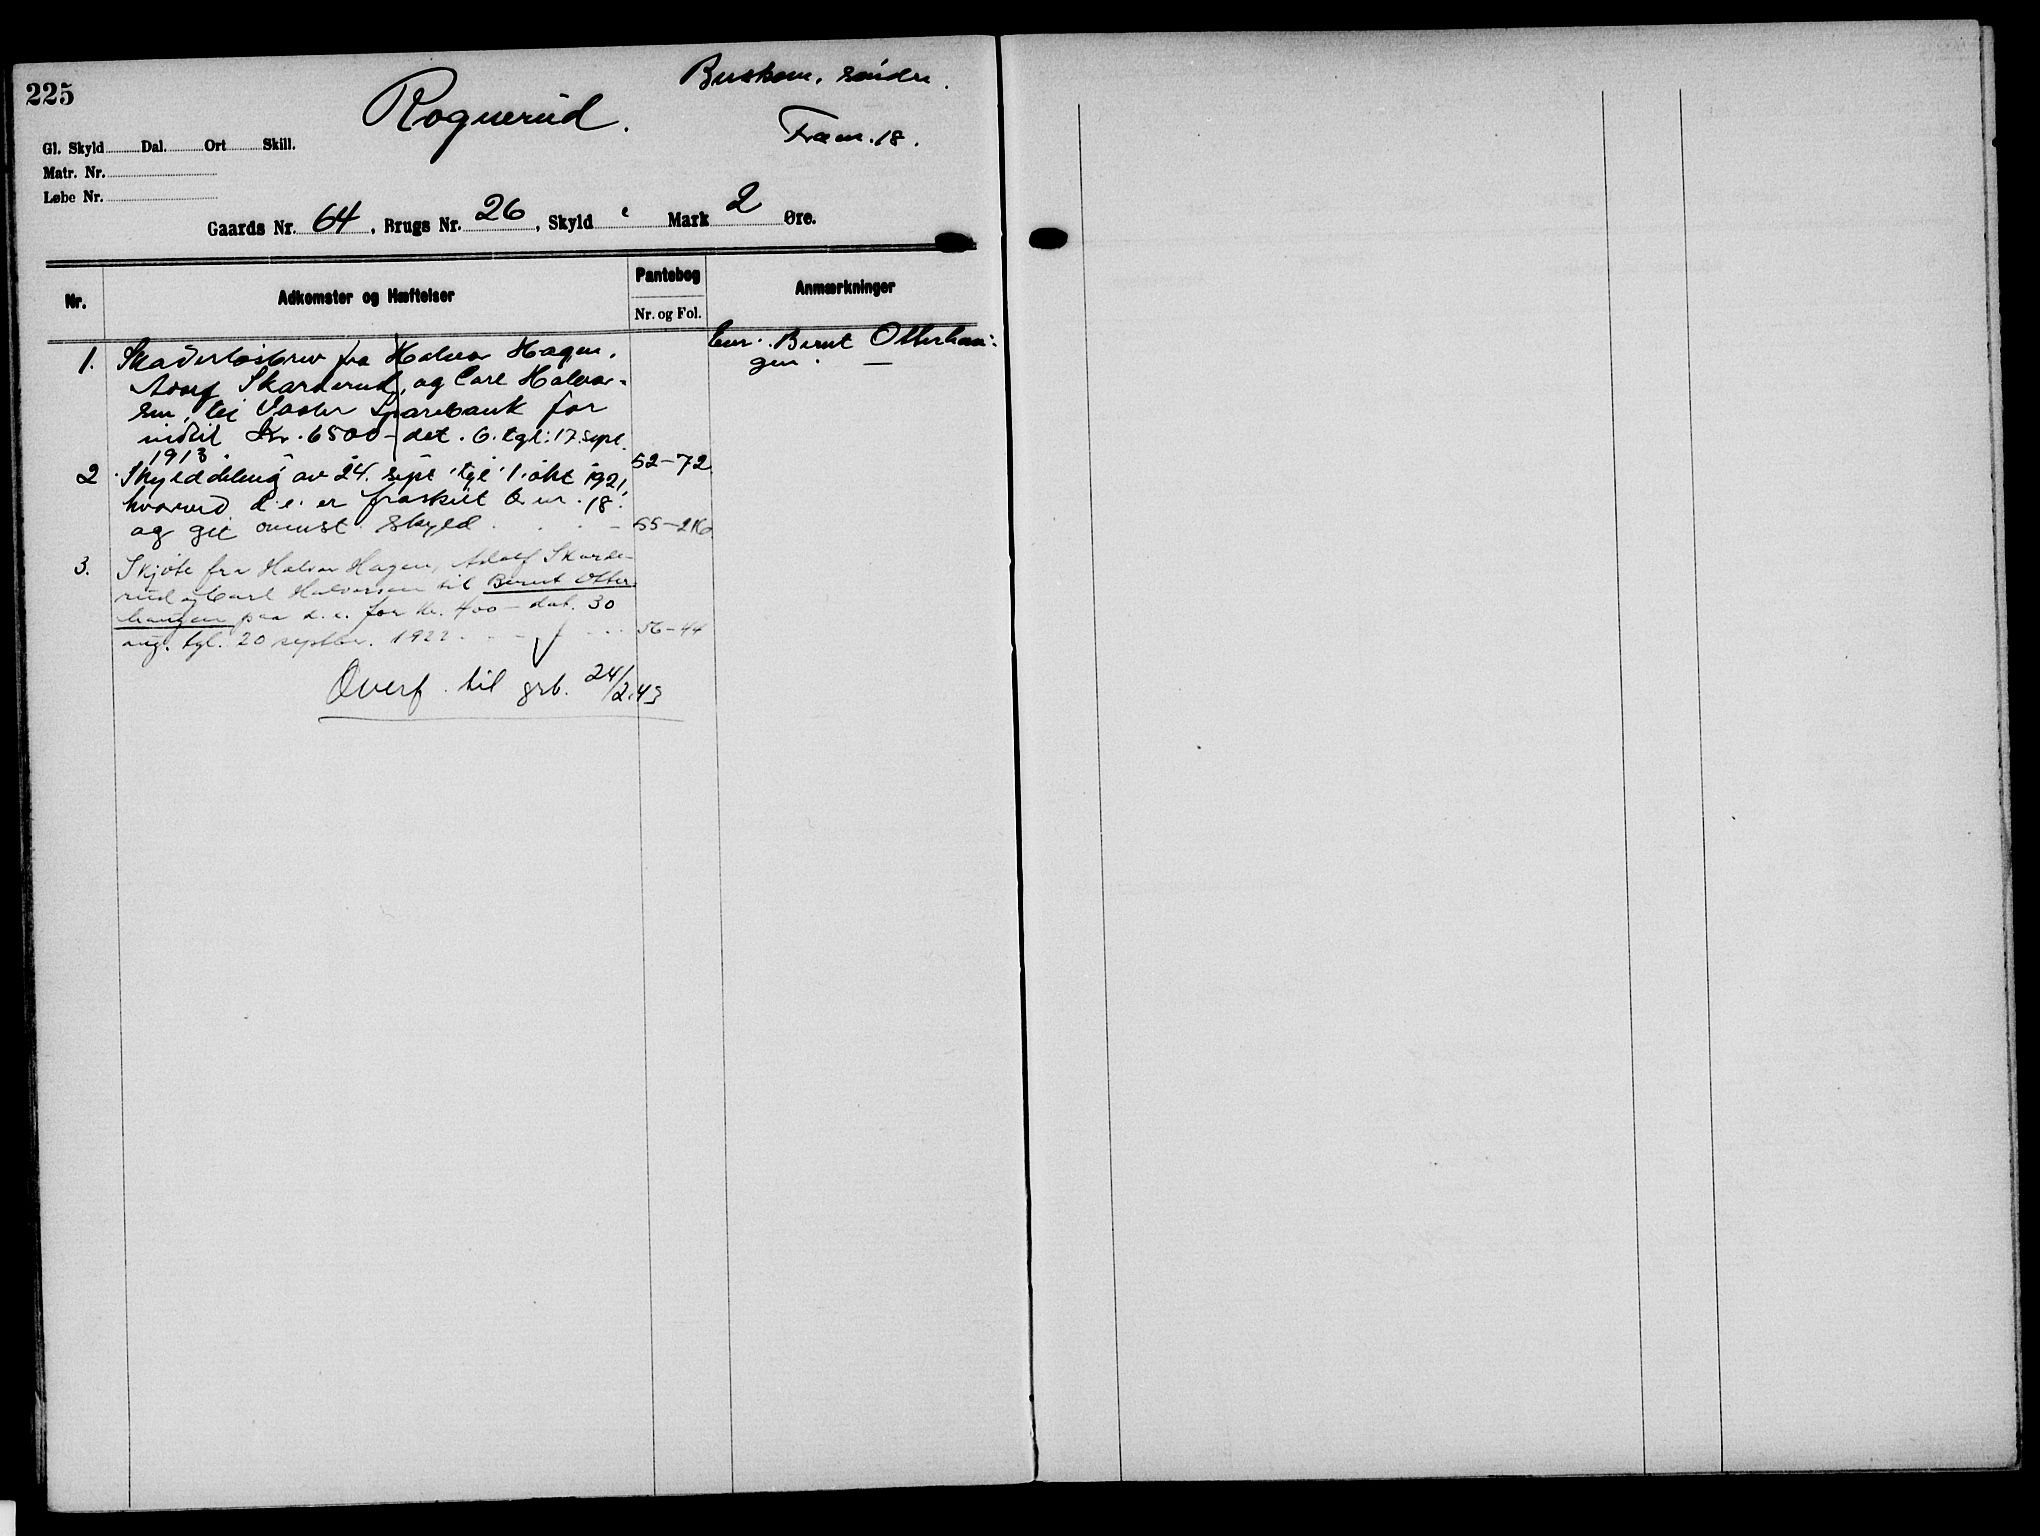 225
Rognerud.
Buskom, søndre.
Fra br.nr. 18.
Gl. Skyld Dal. Ort Skill.
Matr. Nr.
Løbe Nr.
Gaards Nr. 64, Brugs Nr. 26, Skyld Mark 2 Øre.
Nr.
Adkomster og Hæftelser
Pantebog
Nr. og Fol.
Anmærkninger
Eier: Bernt Otterhau-
gen. —
1. Skadesløsbrev fra Halvor Hagen,
Adolf Skarderud, og Carl Halvor-
sen, til Vaaler Sparebank for
indtil Kr. 6500 - dat. 6. tgl. 17. sept.
1913. 52-72
2 Skylddeling av 24. sept. tgl. 1. okt 1921,
hvorved d. e. er fraskilt b. nr. 18.
og git ovenst. skyld. 55-216
3. Skjøte fra Halvor Hagen, Adolf Skarde-
rud og Carl Halvorsen til Bernt Otter
haugen paa d. e. for kr. 400 - dat. 30
aug. tgl. 20 septbr. 1922 56-44
Overf. til grb. 24/2.43